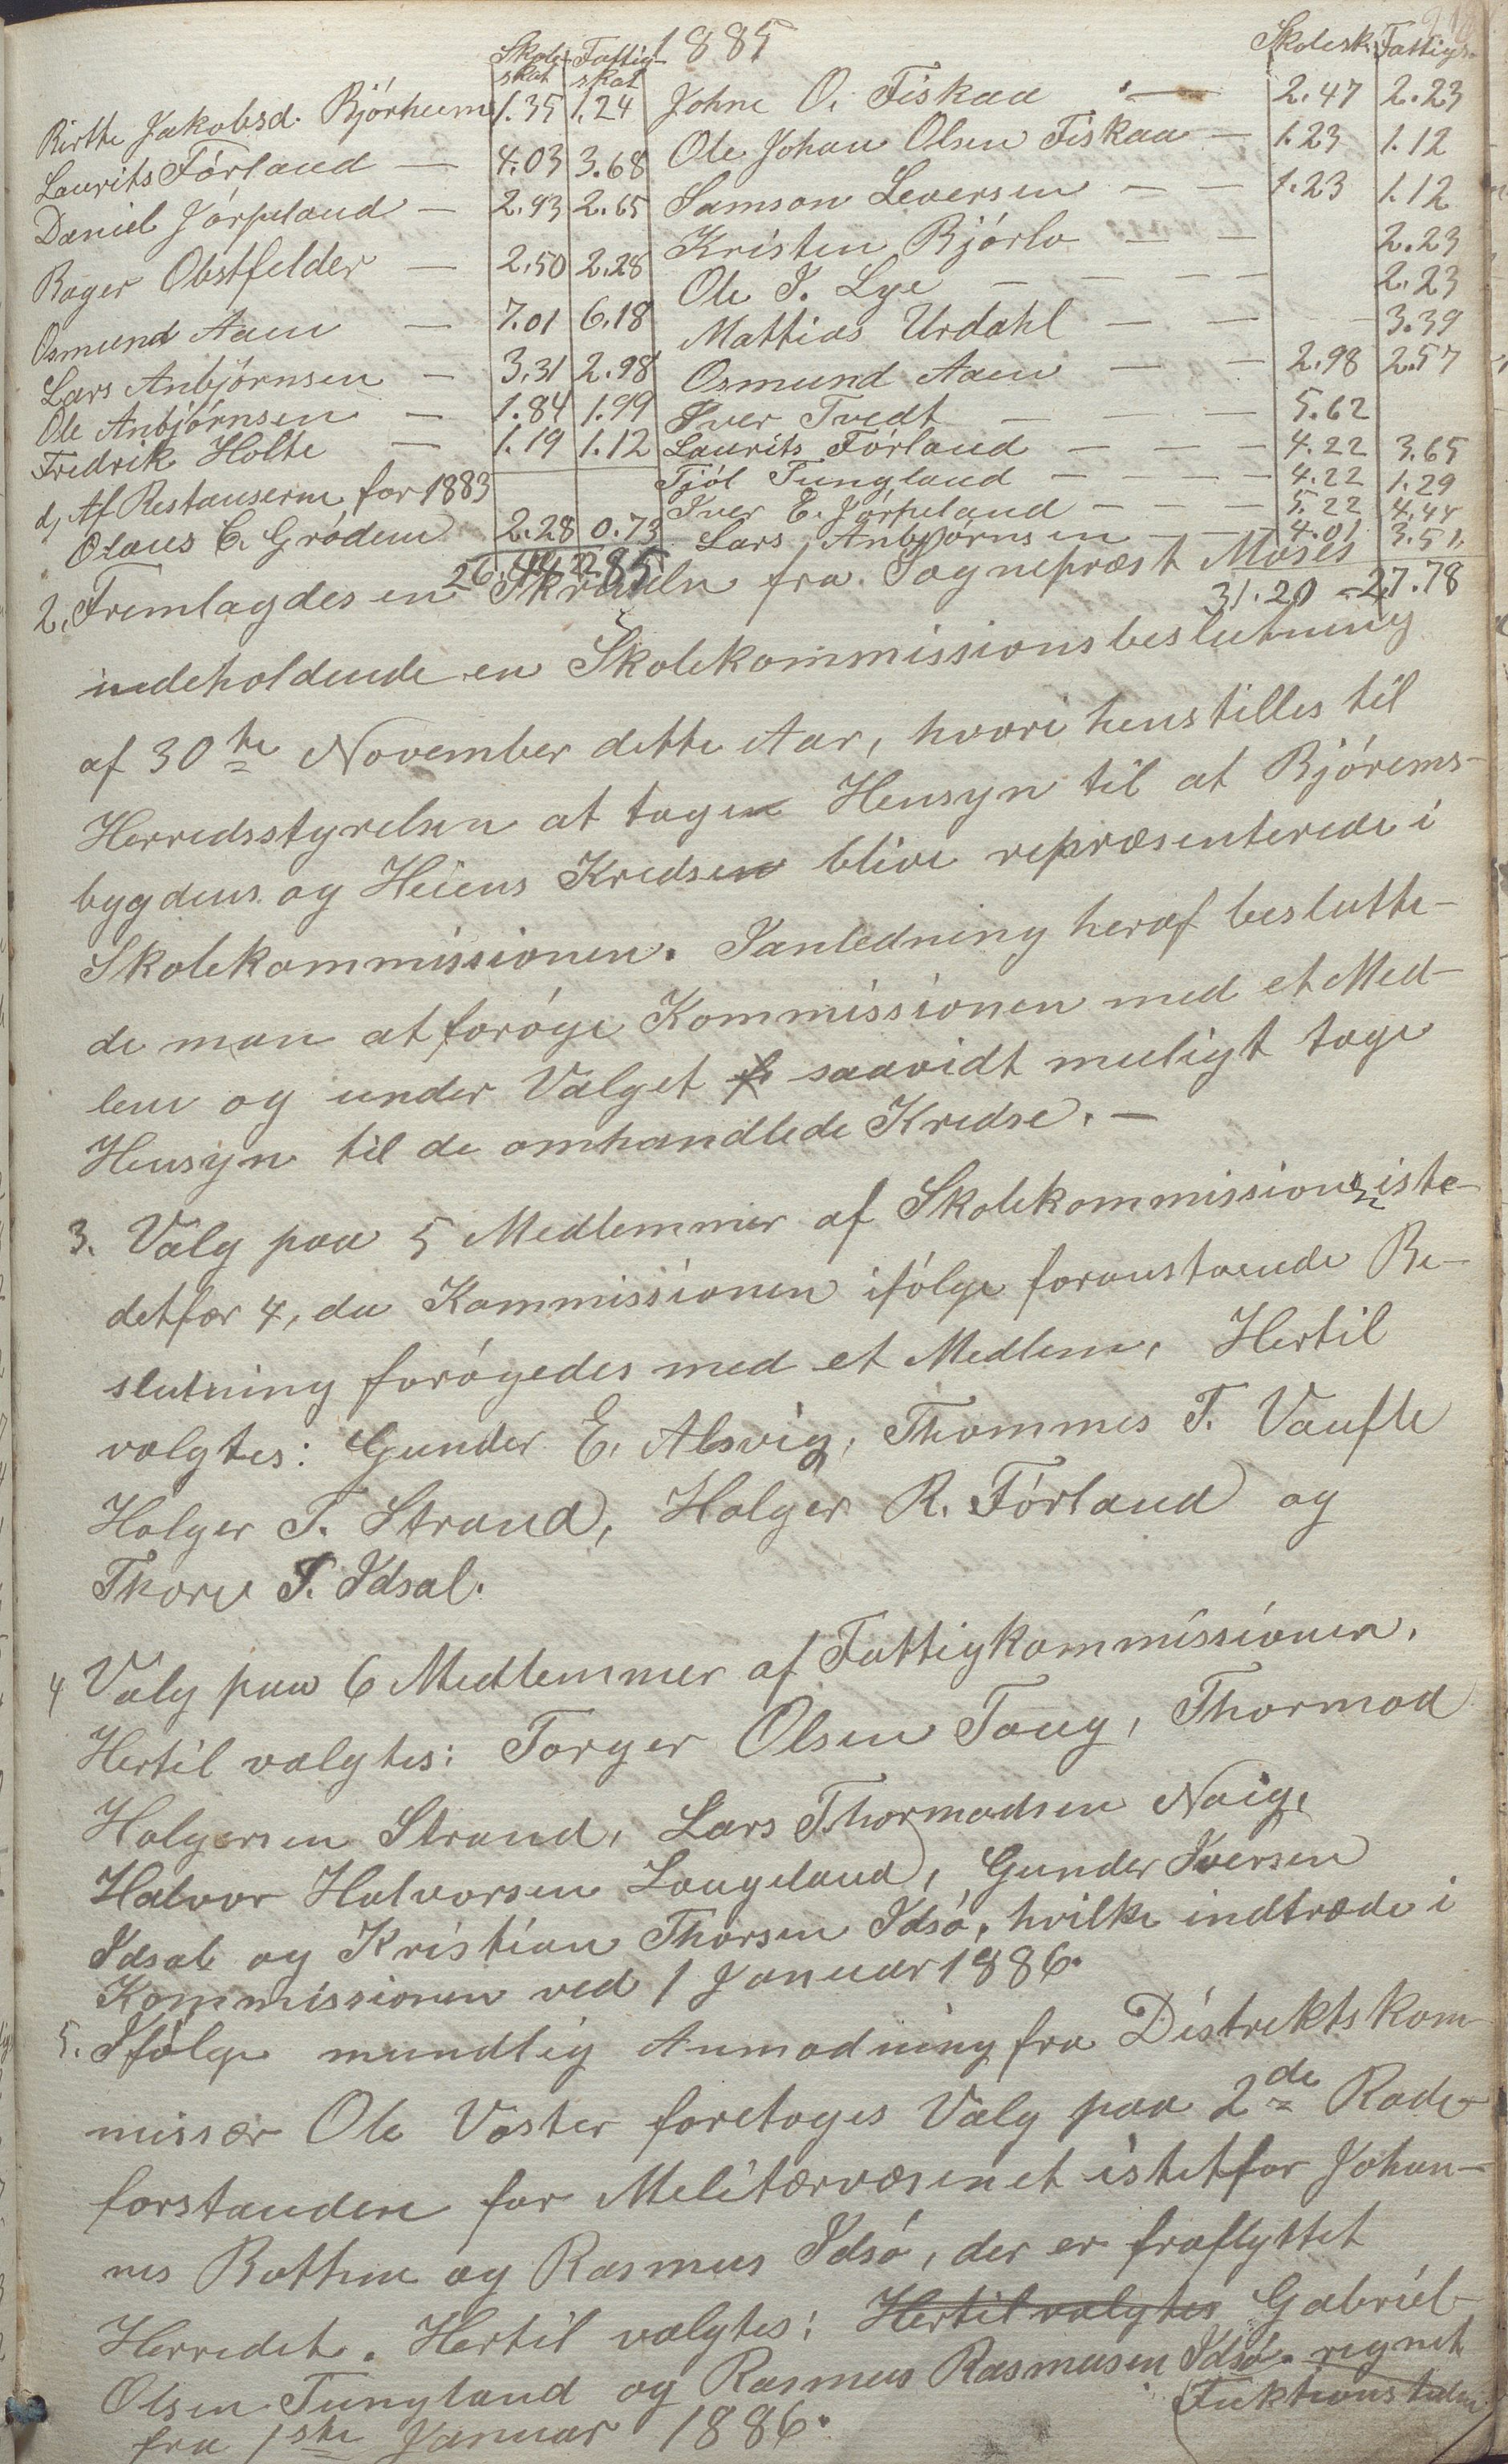 1885
Skole- Fattig-
skat skat
Birthe Jakobsd. Bjórheim 1.35 1.24
Laurits Fórland — 4.03 3.68
Daniel Jórpeland — 2.93 2.65
Bager Obstfelder — 2.50 2.28
Osmund Aaen — 7.01 6.18
Lars Anbjórnsen — 3.31 2.98
Ole Anbjórnsen — 1.84 1.99
Fredrik Holte — 1.19 1.12
d, Af Restanserne for 1883
Olaus C. Gródem 2.28 0.73
Skolesk. Fattigs.
Johne O. Fiskaa — 2.47 2.23
Ole Johan Olsen Fiskaa — 1.23 1.12
Samson Leversen — — 1.23 1.12
Kristen Bjórlo — — 2.23
Ole T. Lye — — — — 2.23
Mattias Urdahl — — — 3.39
Osmund Aaen — — 2.98 2.57
Iver Tvedt — — 5.62
Laurits Fórland — — — 4.22 3.65
Tjól Tungland — — — — 4.22 1.29
Iver E. Jórpeland — — — 5.22 4.44
Lars Anbjórnsen — — 4.01 3.51
31.20 - 27.78
2. Fremlagdes en Skrivelse fra Sognepræst Moses
indeholdende en Skolekommissionsbeslutning
af 30te November dette Aar, hvori henstilles til
Herredsstyrelsen at tage Hensyn til at Bjóreims-
bygdens og Heiens Kredse blive repræsenterede i
Skolekommissionen. Ianledning heraf beslutte-
de man at foróge Kommissionen med et Med-
lem og under Valget saavidt muligt tage
Hensyn til de omhandlede Kredse. —
3. Valg paa 5 Medlemmer af Skolekommissionen iste-
detfor 4, da Kommissionen ifólge foranstaende Be-
slutning forógedes med et Medlem. Hertil
valgtes: Gunder E. Alsvig, Thommes T. Vaufle
Holger T. Strand, Holger R. Fórland og
Thore T. Idsal.
4 Valg paa 6 Medlemmer af Fattigkommissionen.
Hertil valgtes: Torger Olsen Taug, Thormod
Holgersen Strand, Lars Thormodsen Naig,
Halvor Halvorsen Langeland, Gunder Iversen
Idsal og Kristian Thorsen Idsó, hvilke indtræde i
Kommissionen ved 1 Januar 1886.
5. Ifólge mundtlig Anmodning fra Distriktskom-
missær Ole Voster foretoges Valg paa 2de Rode-
forstandere for Melitærvæsenet istetfor Johan-
nes Botthne og Rasmus Idsó, der er fraflyttet
Herredet. Hertil valgtes: Hertil valgtes Gabriel
Olsen Tungland og Rasmus Rasmusen Idsó. regnet
fra 1ste Januar 1886. (Fuktionstiden